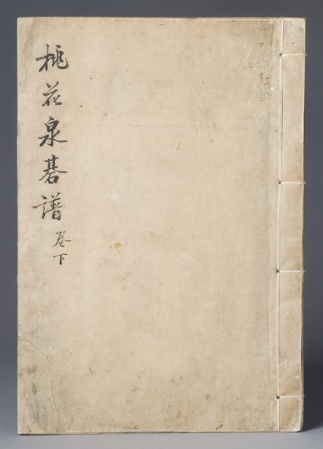 桃花泉碁譜 卷下